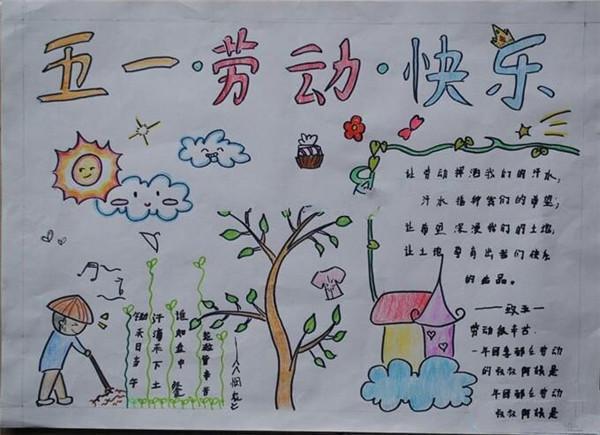 五一·劳动·快乐
让劳动挥洒我们的汗水,
汗水播种我们的希望,
让希望浸漫我们的土地,
让土地孕育出我们快乐
的果品。
——致五一
劳动最辛苦.
一年四季都在劳动
的叔叔阿姨是
一年四季都在劳动
叔叔阿姨是
锄禾日当午
汗滴禾下土
谁知盘中餐
粒粒皆辛苦
——《悯农》